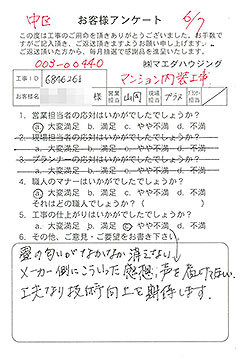 中区 お客様アンケート 6/7
この度は工事のご用命を頂きありがとうございました。お手数で
すがご記入頂き、ご返送頂きますようお願い申し上げます。
ご返送頂いた方には、毎月抽選で感謝品を進呈いたします。
003-00440 ㈱マエダハウジング
工事ID 6896261 マンション内装工事
お客様名 様 営業担当 山岡 現場担当 プラス
1. 営業担当者の応対はいかがでしたでしょうか?
ⓐ 大変満足 b. 満足 c. やや不満 d. 不満
2. 現場担当者の応対はいかがでしたでしょうか?
a. 大変満足 b. 満足 c. やや不満 d. 不満
3. プランナーの応対はいかがでしたでしょうか?
a. 大変満足 b. 満足 c. やや不満 d. 不満
4. 職人のマナーはいかがでしたでしょうか?
ⓐ 大変満足 b. 満足 c. やや不満 d. 不満
それはどの職人でしょうか?( )
5. 工事の仕上がりはいかがでしたでしょうか?
a. 大変満足 b. 満足 ⓒ やや不満 d. 不満
6. その他、ご意見・ご要望をお書き下さい。
畳の匂いがなかなか消えない。
メーカー側にこういった感想、声を届けてほしい。
工夫なり技術向上を期待します。